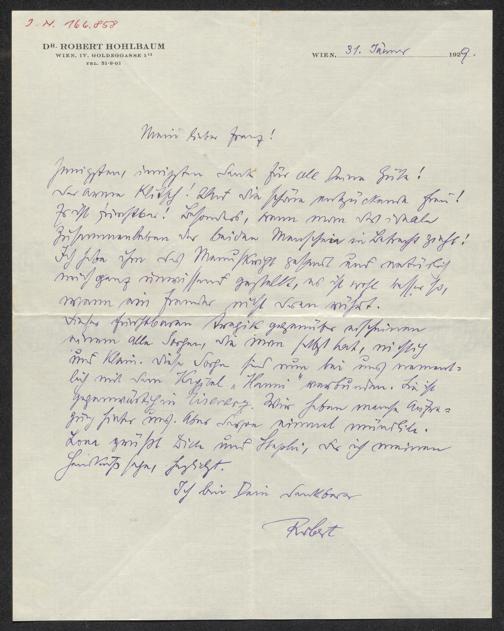 J. N. 166.858
DR. ROBERT HOHLBAUM
WIEN, IV. GOLDEGGASSE 1
TEL. 51-9-01
WIEN, 31. Jänner 1929.
Mein lieber Franz!
Innigsten, innigsten Dank für all Deine Güte!
Der arme Klitsch! Und die schöne entzückende Frau!
Es ist furchtbar! Besonders, wenn man das ideale
Zusammenleben der beiden Menschen in Betracht zieht!
Ich habe ihm das Manuskript gesandt und natürlich
mich ganz unwissend gestellt, es ist wohl besser so,
wenn ein Fremder nicht dran rührt.
Dieser furchtbaren Tragik gegenüber erscheinen
einem alle Sorgen, die man selbst hat, nichtig
und klein. Diese Sorgen sind nun bei uns nament-
lich mit dem Kapitel „Hanni" verbunden. Sie ist
gegenwärtig in . Wir haben manche Aufre-
gung hinter uns. Aber davon einmal mündlich.
Lona grüßt Dich und Steffi, der ich meinen
Handkuß sende, herzlichst.
Ich bin Dein dankbarer
Robert